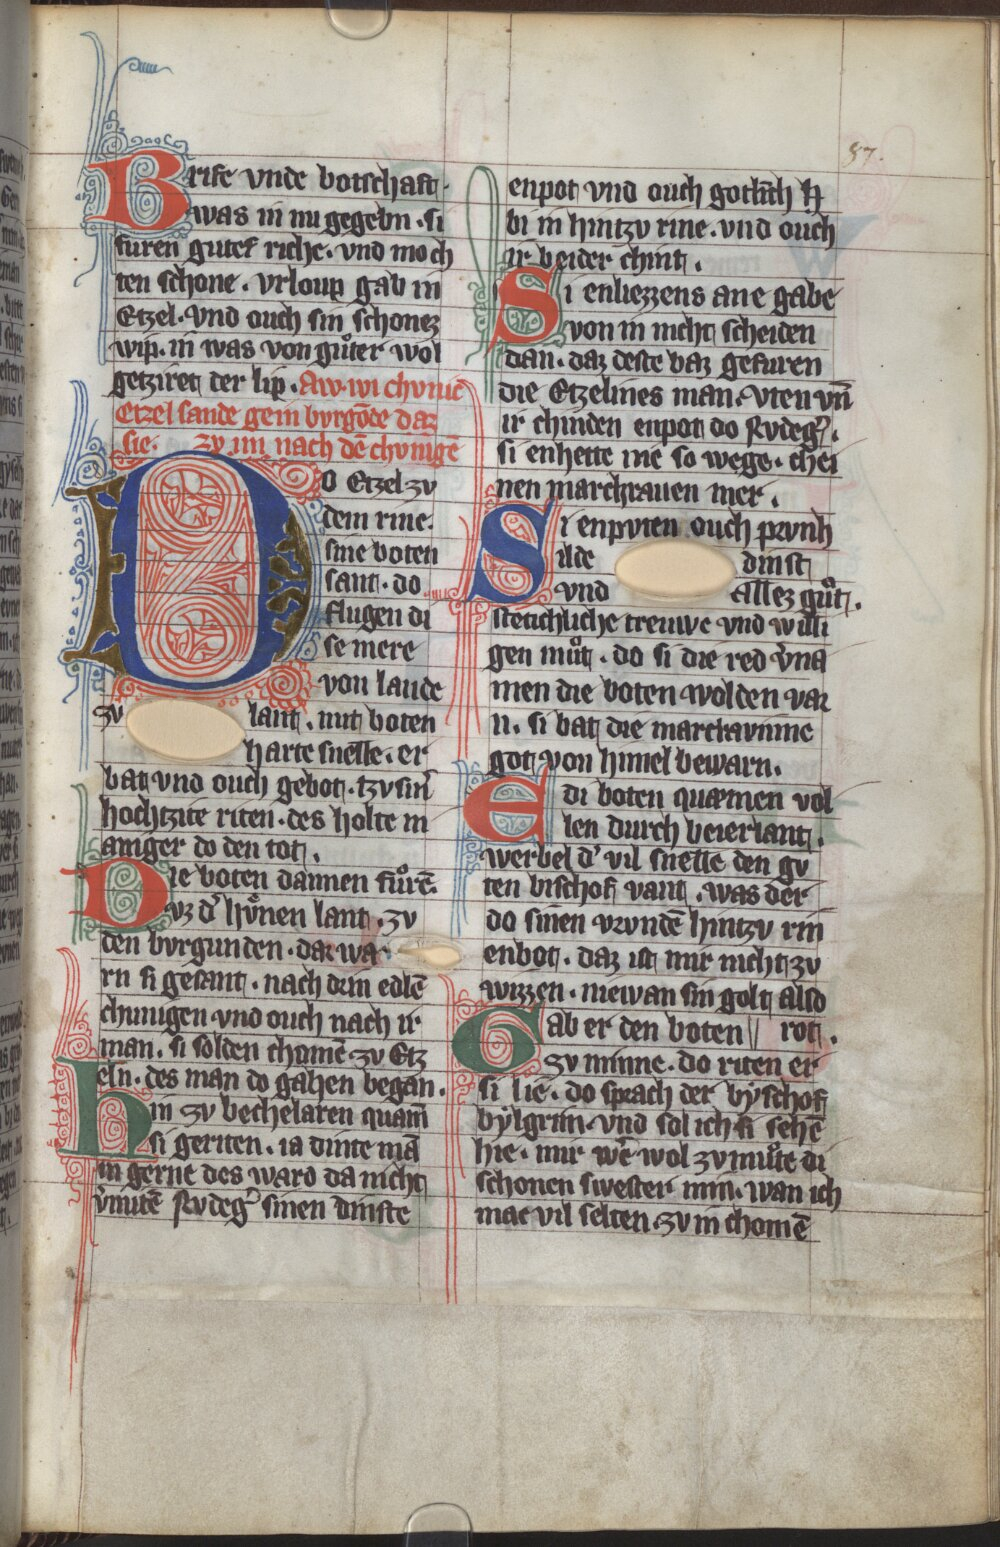 57.
Brife vnde botschaft.
was in nu gegebn. si
furen gutes riche. vnd moch
ten schone. vrloup gab in
Etzel. vnd ouch sin schonez
wip. in was von gůter wol
getziret der lip. Aw wi chvnic
Etzel sande gein bvrgōde daz
sie. zv im nach dē chvnigē
DO Etzel zv
dem rine.
sine boten
sant. do
flugen di
se mere
von lande
zv lant. mit boten
harte snelle. er
bat vnd ouch gebot. tzv sin̄
hochtzite riten. des holte m
aniger do den tot.
Die boten dannen fůrē.
vz d' hv̊nen lant. zv
den bvrgunden. dar wa
rn si gesant. nach drin edlē
chunigen vnd ouch nach ir
man. si solden chomē zv Etz
eln. des man do gahen began.
hin zv bechelaren quam̄
si geriten. ia dinte mā
in gerne des ward da nicht
v̓mitē Rvdeg̓ sinen dinste
enpot vnd ouch gotlīch h
bi in hintzv rine. vnd ouch
ir beider chint.
Si enliezzens ane gabe
von in nicht scheiden
dan. daz deste baz gefuren
die Etzelines man. vten vn̄
ir chinden enpot do Rvdeg̓.
si enhette nie so wege. chei
nen marchrauen mer.
Si enpvten ouch prvnh
ilde dinst
vnd allez gůt.
stetichliche treuwe vnd willi
gen můt. do si die red v̓na
men die boten wolden var
n. si bat die marchravinne
got von himel bewarn.
E di boten quæmen vol
len durch beierlant.
werbel d' vil snelle den gv
ten bischof vant. was der
do sinen vrvndē hintzv rin
enbot. daz ist mir nicht zv
wizzen. niewan sin golt also
Gab er den boten rot.
zv minne. do riten er
si lie. do sprach der byschof
bylgrim. vnd sol ich si sehē
hie. mir wē wol zv můte di
schonen swester min. wan ich
mac vil selten zv in chomē